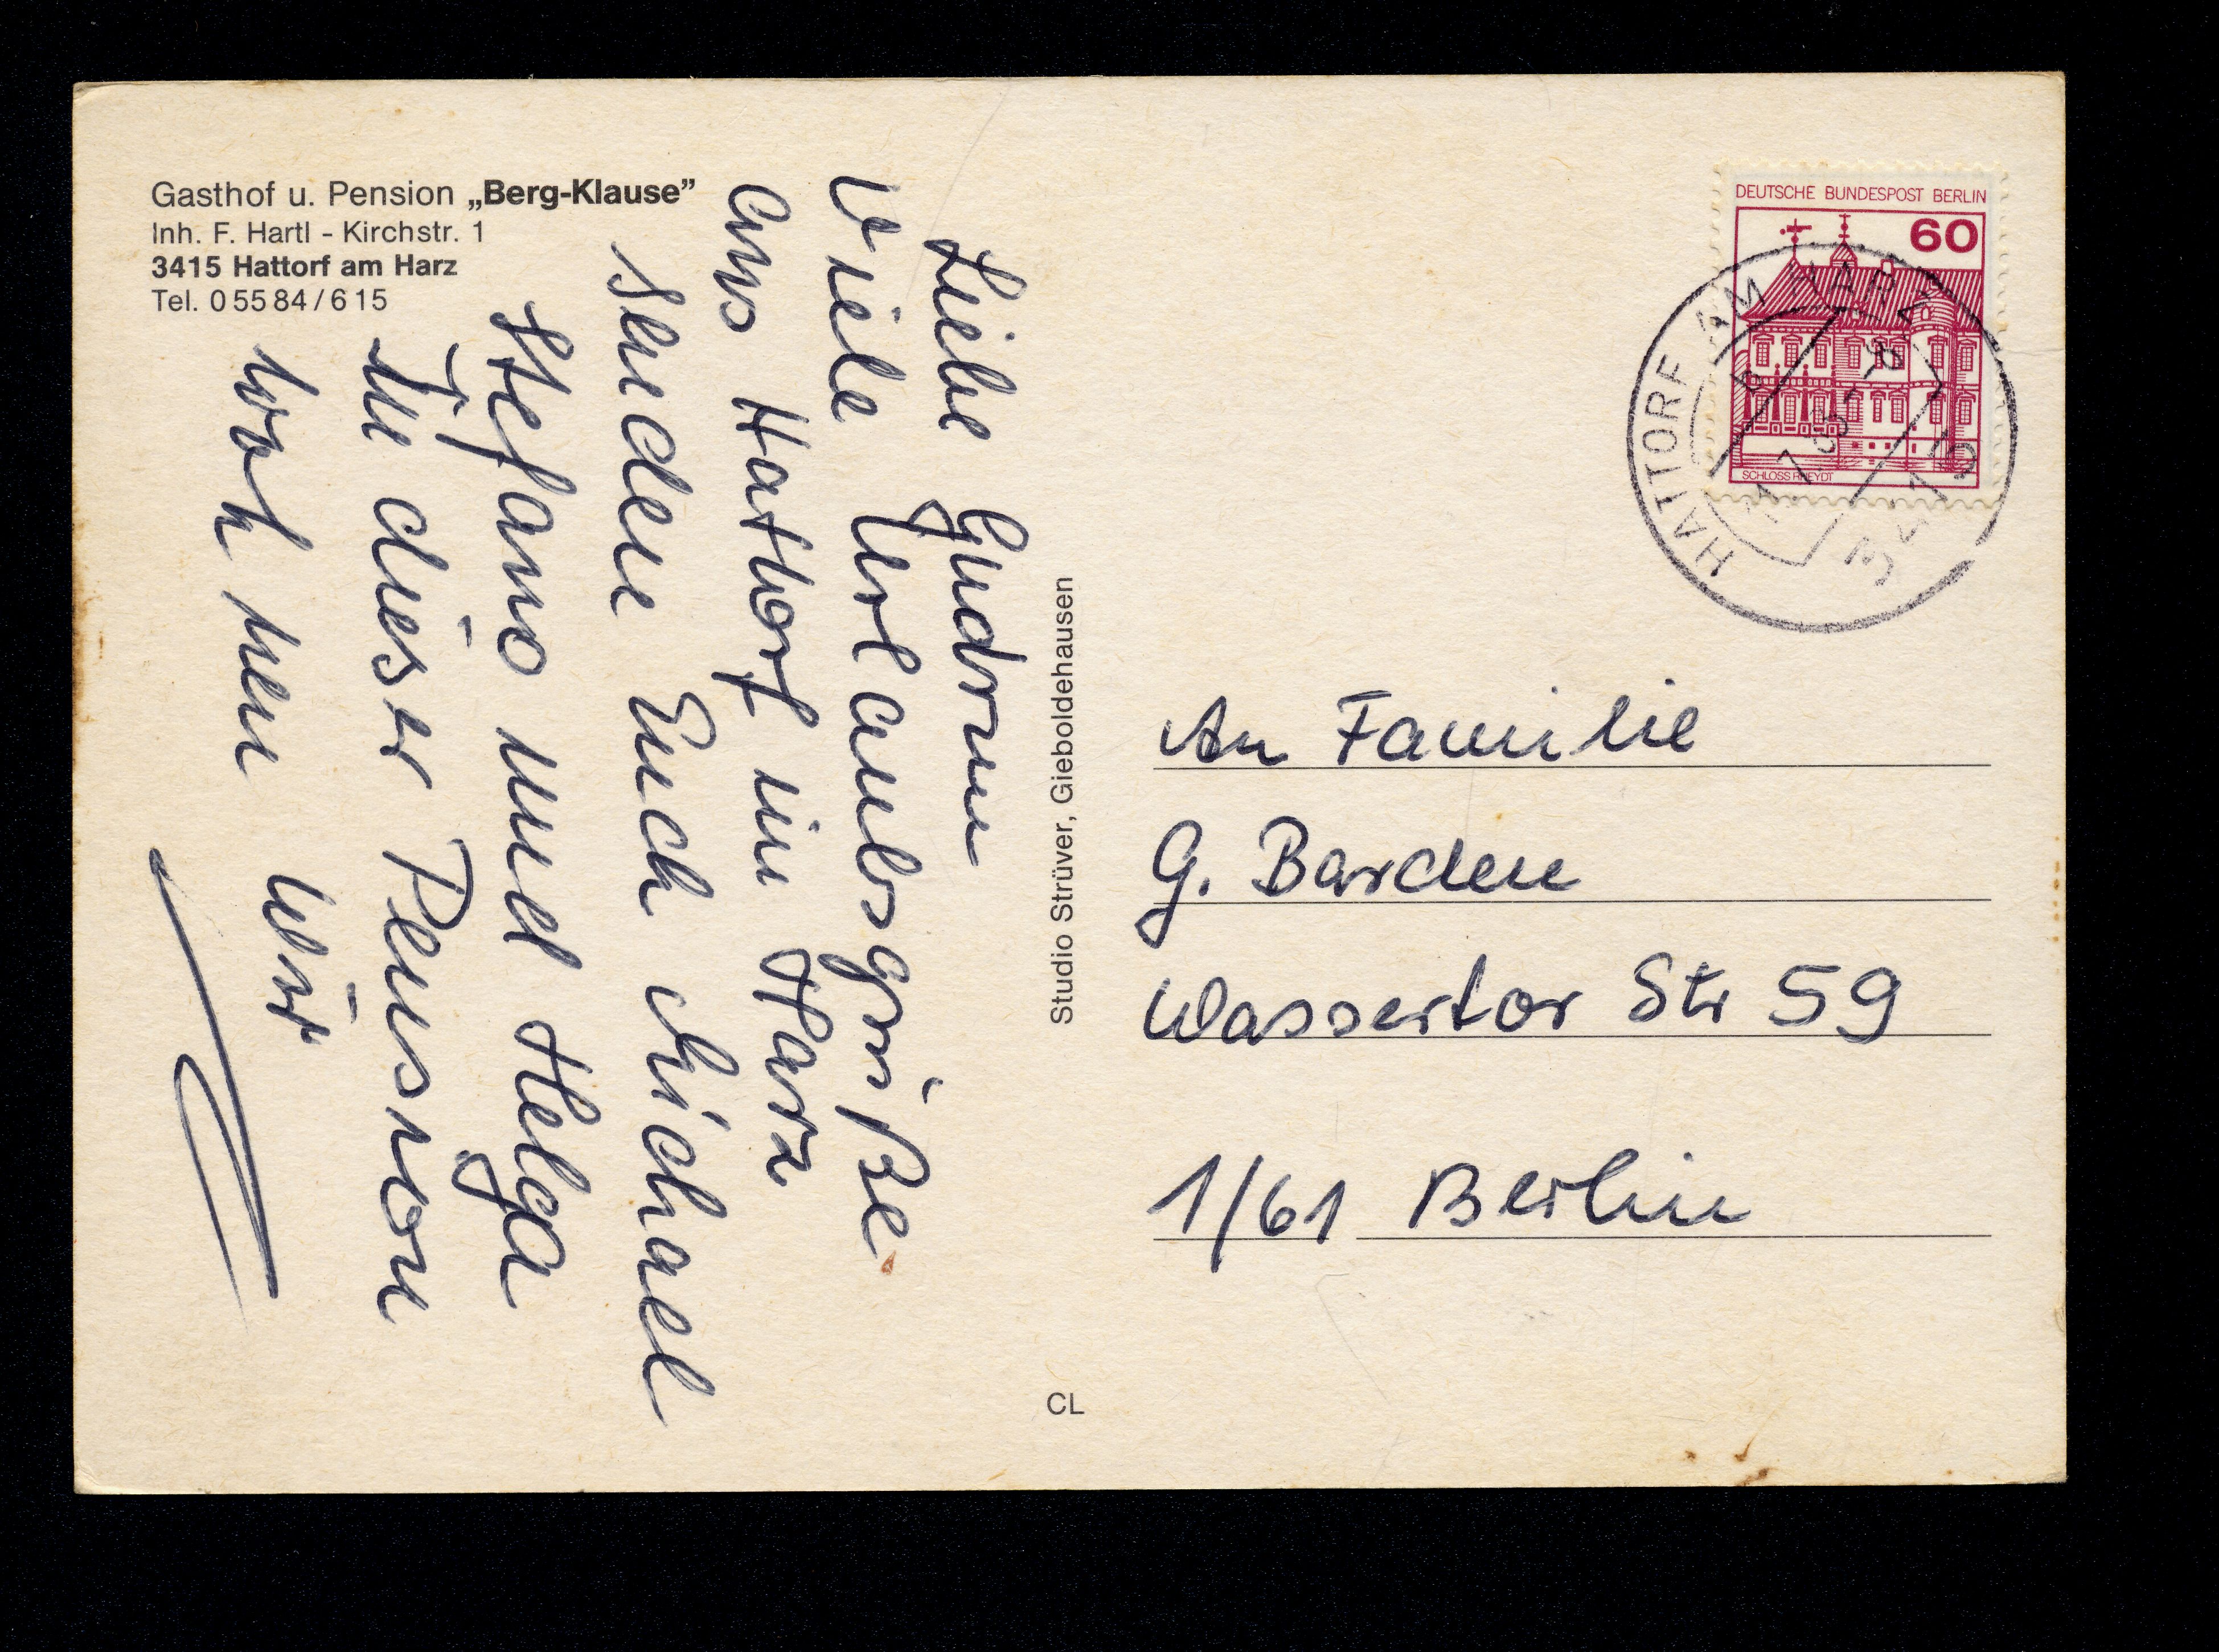 Gasthof u. Pension „Berg-Klause”
Inh. F. Hartl - Kirchstr. 1
3415 Hattorf am Harz
Tel. 0 55 84 / 6 15
Liebe Gudrun
Viele Urlaubsgrüße
aus Hattorf im Harz
senden Euch Michael
Stefano und Helga
In dieser Pension
wohnen wir
Studio Strüver, Gieboldehausen
CL
DEUTSCHE BUNDESPOST BERLIN
60
SCHLOSS RHEYDT
HATTORF AM HARZ
3415
An Familie
G. Barden
Wassertor Str 59
1/61 Berlin